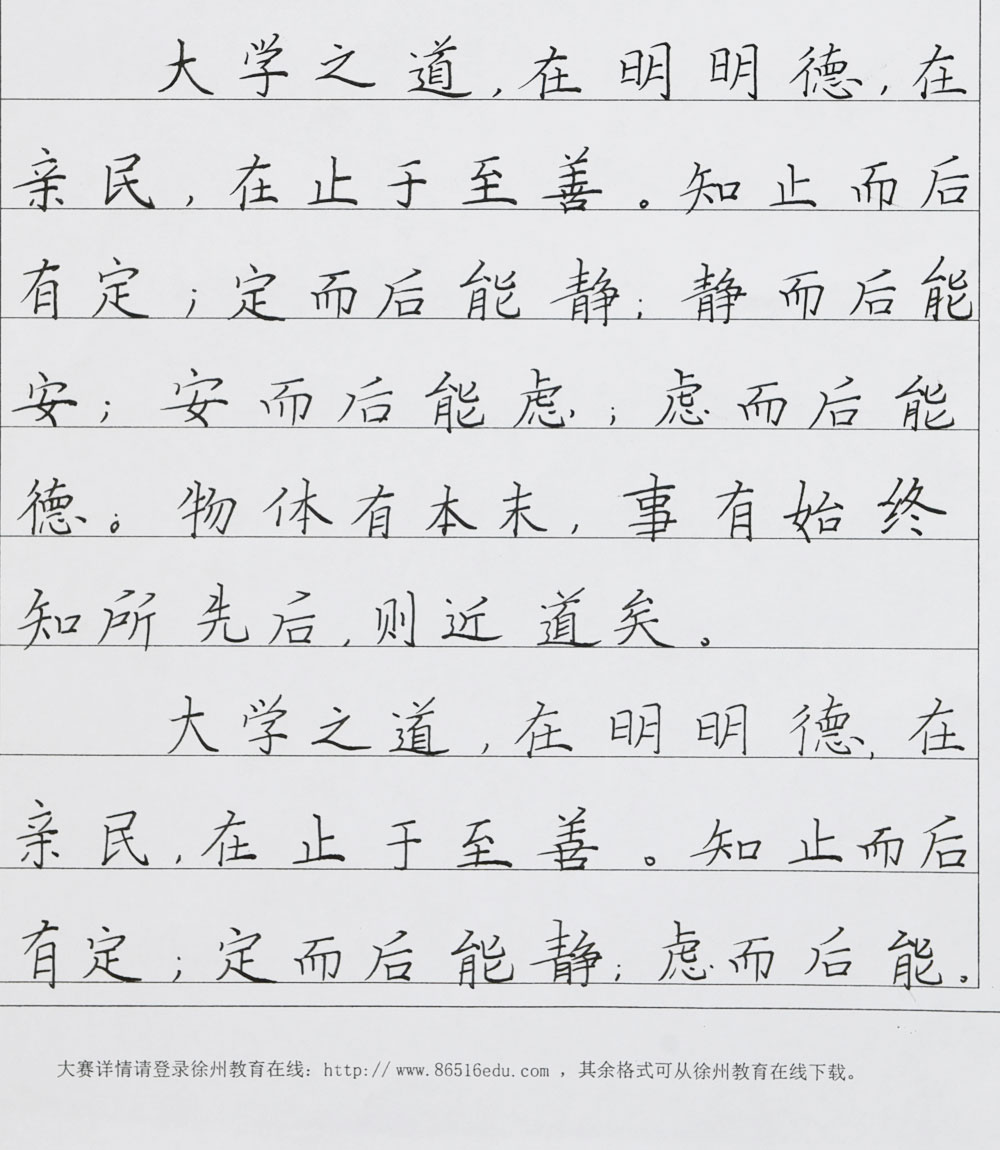 大学之道,在明明德,在
亲民,在止于至善。知止而后
有定;定而后能静;静而后能
安;安而后能虑;虑而后能
德。物体有本末,事有始终
知所先后,则近道矣。
大学之道,在明明德,在
亲民,在止于至善。知止而后
有定;定而后能静;虑而后能。
大赛详情请登录徐州教育在线: http://www.86516edu.com ,其余格式可从徐州教育在线下载。